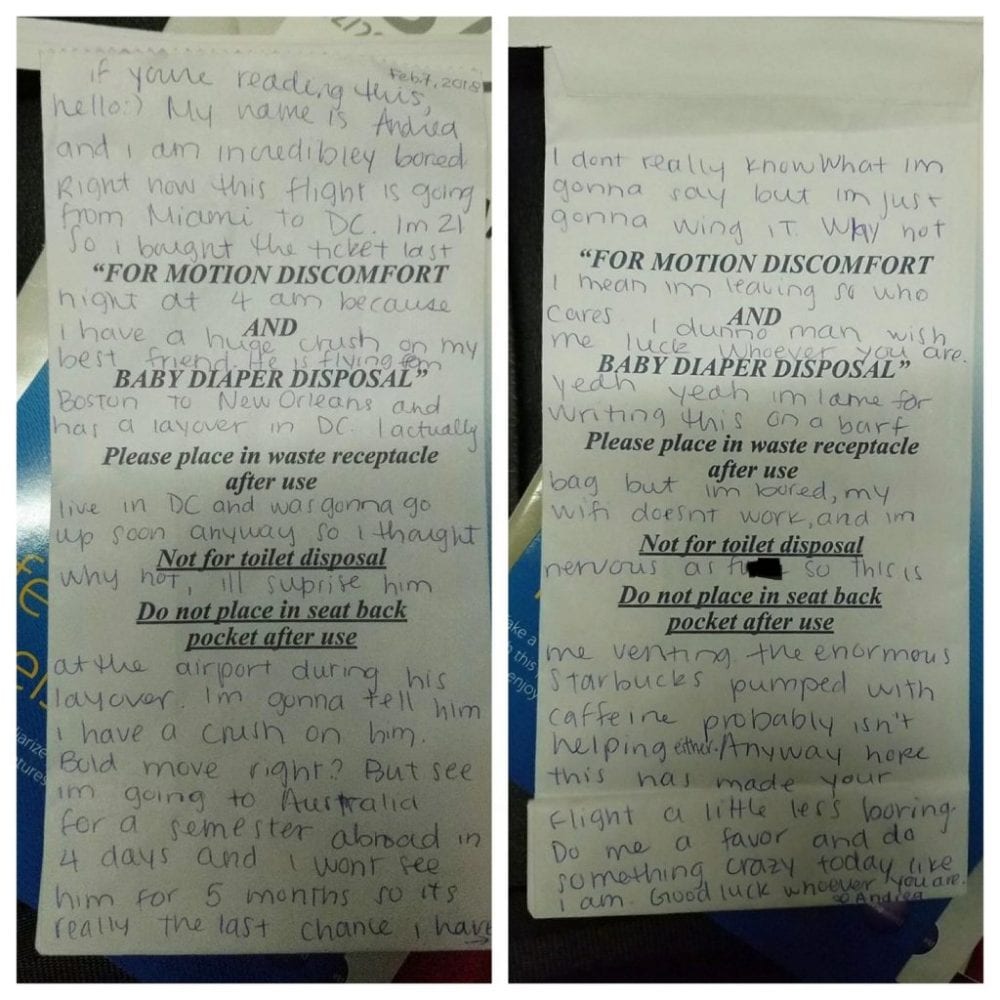 Feb.7, 2018
if youre reading this,
hello:) My name is Andrea
and i am incredibley bored
Right now this flight is going
from Miami to DC. Im 21
So i bought the ticket last
“FOR MOTION DISCOMFORT
night at 4 am because
AND
i have a huge crush on my
best friend. He is flying from
BABY DIAPER DISPOSAL”
Boston to New Orleans and
has a layover in DC. I actually
Please place in waste receptacle
after use
live in DC and was gonna go
up soon anyway so i thought
Not for toilet disposal
why not, ill suprise him
Do not place in seat back
pocket after use
at the airport during his
layover. Im gonna tell him
i have a crush on him.
Bold move right? But see
im going to Australia
for a semester abroad in
4 days and i wont see
him for 5 months so its
really the last chance i have
→
I dont really know What im
gonna say but im just
gonna wing it. Why not
“FOR MOTION DISCOMFORT
I mean im leaving so who
cares. I dunno man wish
AND
me luck whoever you are.
BABY DIAPER DISPOSAL”
yeah yeah im lame for
writing this on a barf
Please place in waste receptacle
after use
bag but im bored, my
wifi doesnt work, and im
Not for toilet disposal
nervous as fu so this is
Do not place in seat back
pocket after use
me venting. the enormous
Starbucks pumped with
caffeine probably isn't
helping either. Anyway hope
this has made your
flight a little less boring.
Do me a favor and do
something crazy today like
i am. Good luck whoever you are.
Andrea
ake a
this
enjoy
fe
el
arize
tures